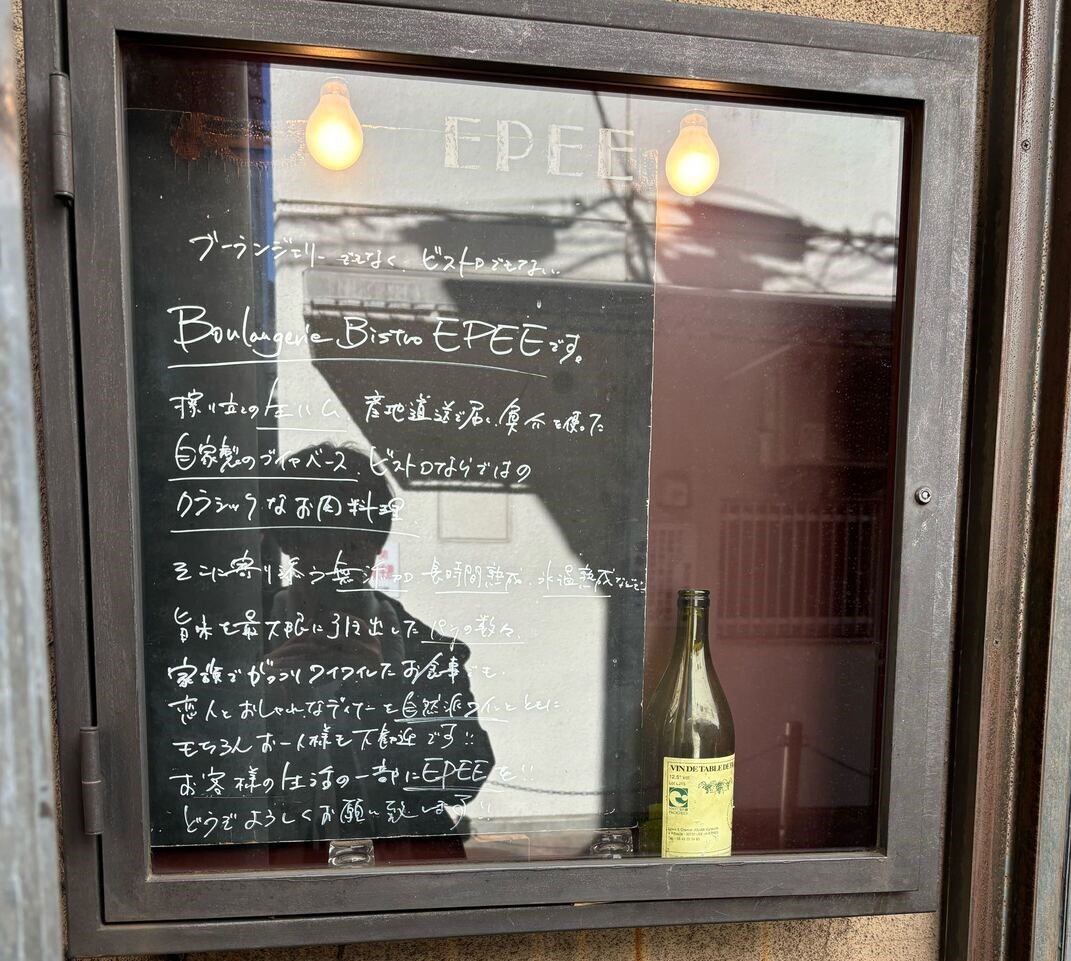 EPEE
ブーランジェリーでもなく、ビストロでもない。
Boulangerie Bistro EPEEです。
擦り立ての生ハム 産地直送で届く魚介を使った
自家製のブイヤベース、ビストロならではの
クラシックなお肉料理
そこに寄り添う 長時間熟成、氷温熟成など
旨味を最大限に引き出したパンの数々、
家族でがっつりワイワイしたお食事も、
恋人とおしゃれなディナーを自然派ワインとともに
もちろんお一人様も大歓迎です!!
お客様の生活の一部にEPEEを!!
どうぞよろしくお願い致します!!
VIN DE TABLE DE
12.5% vol